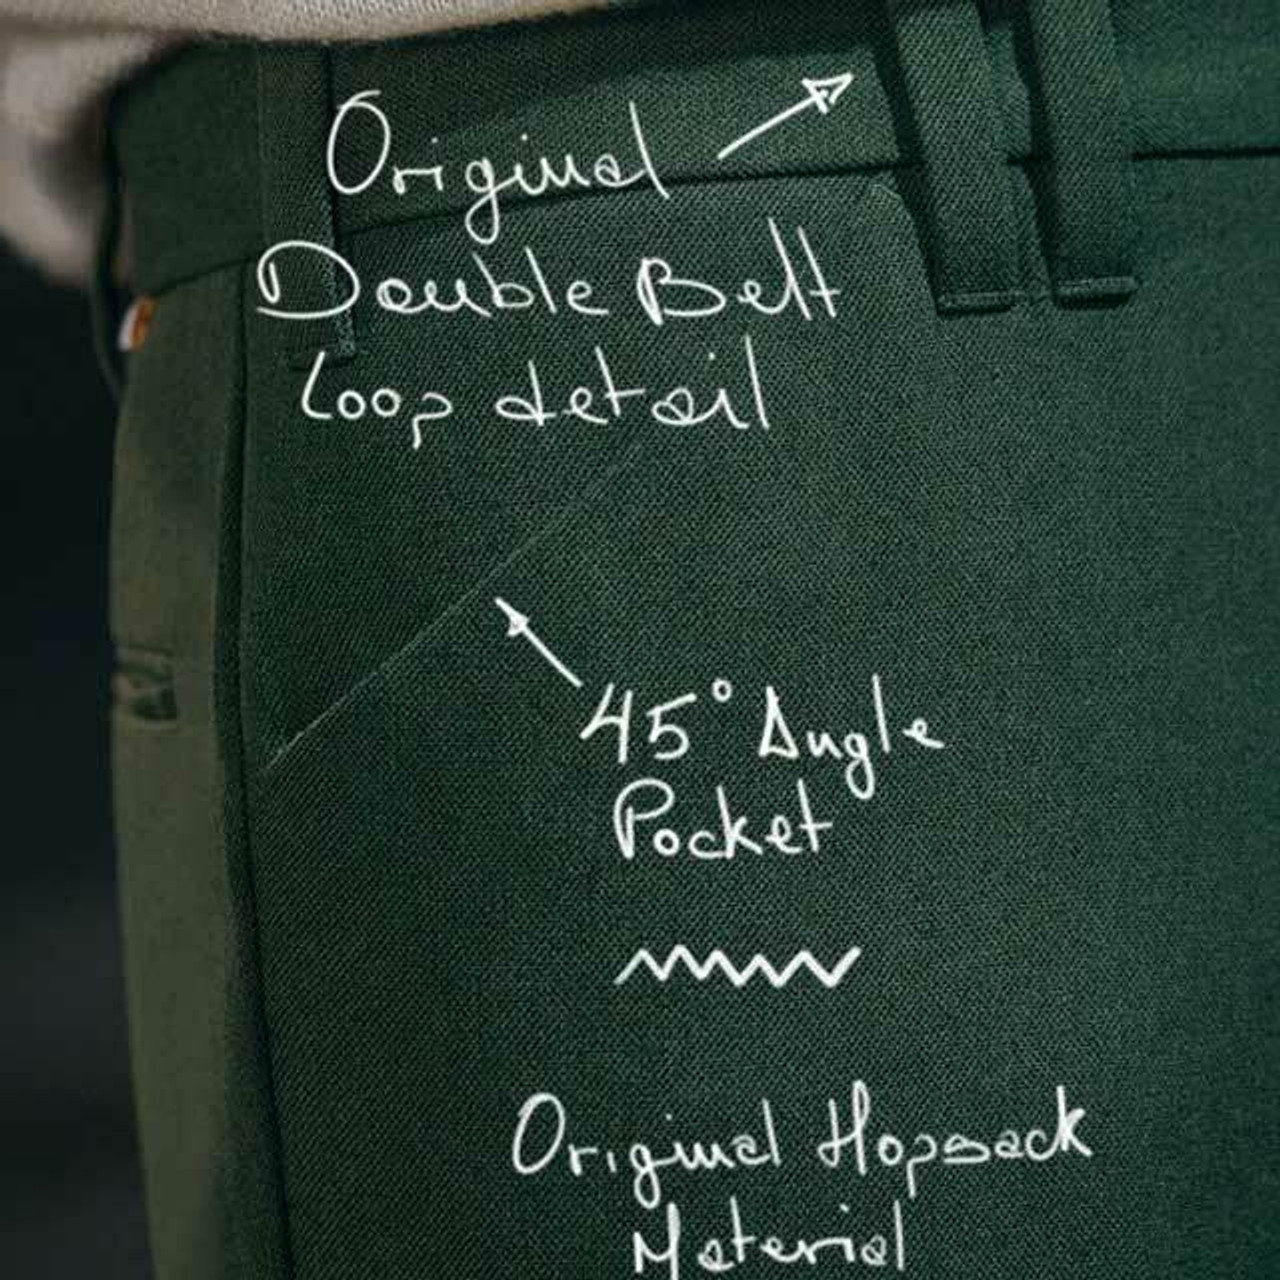 Original
Double Belt
Loop detail
45° Angle
Pocket
Original Hopsack
Material